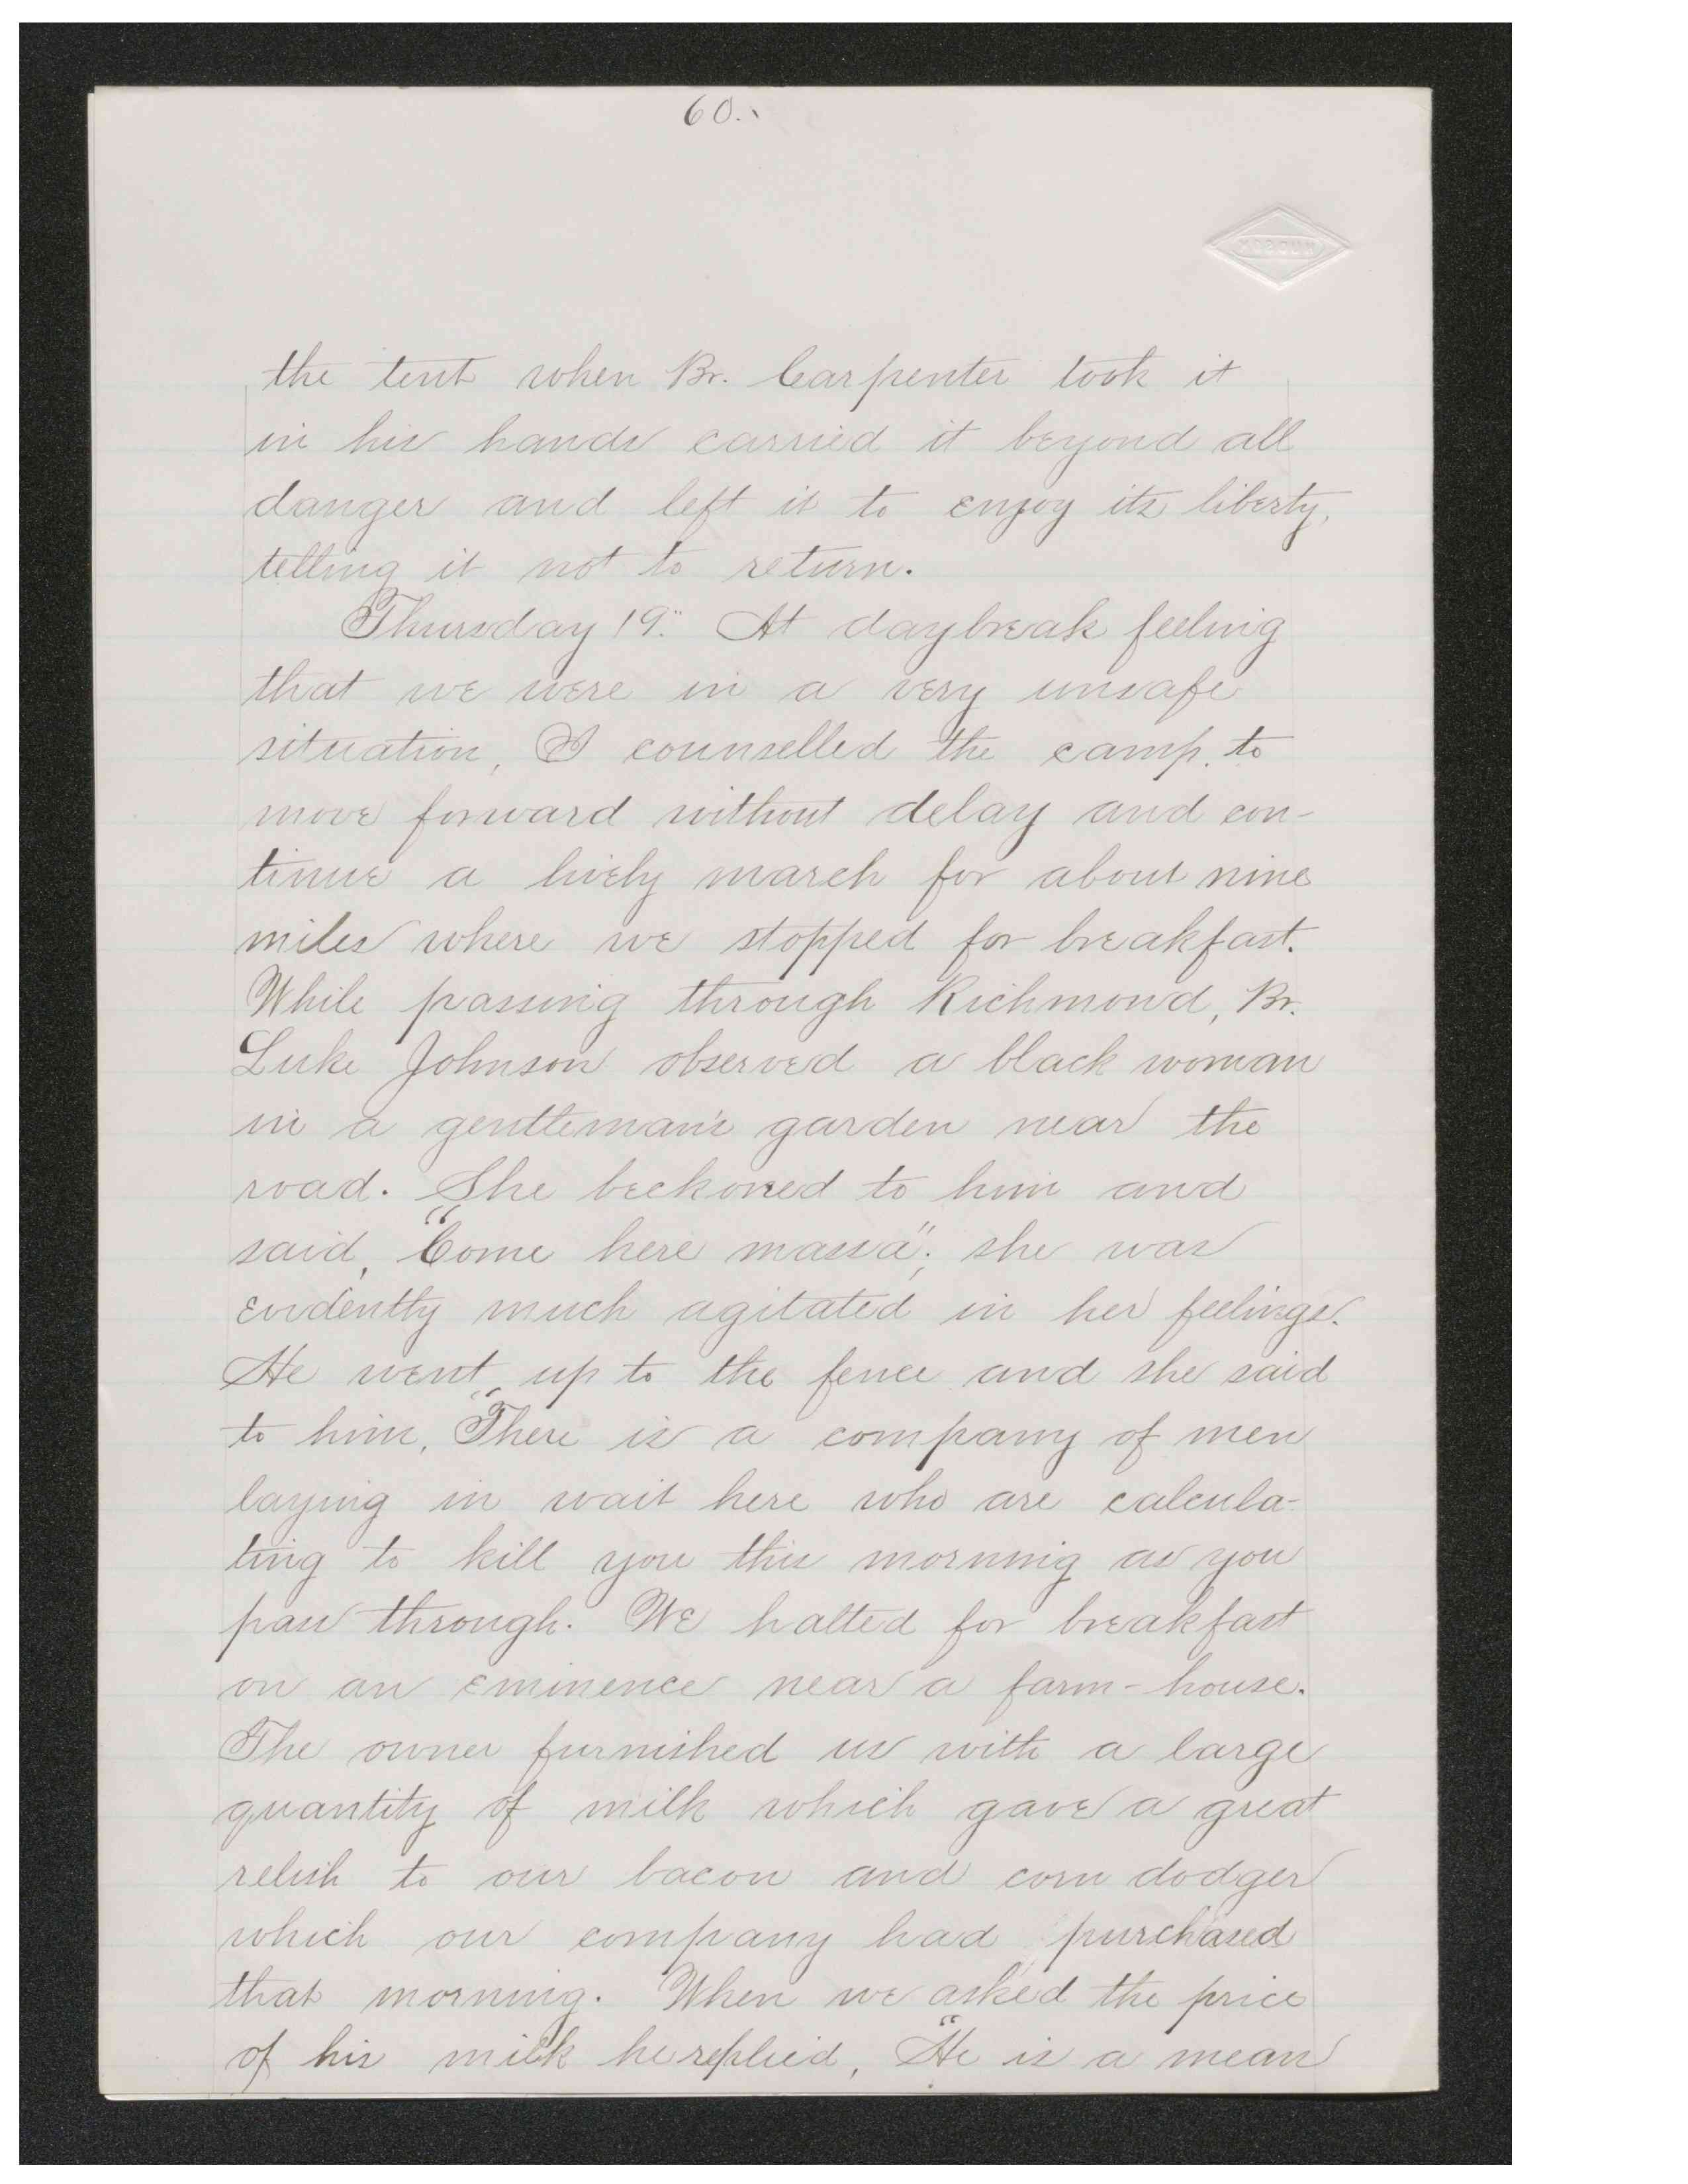 60.
the tent when Br. Carpenter took it
in his hands carried it beyond all
danger and left it to enjoy its liberty,
telling it not to return.
Thursday 19." At daybreak feeling
that we were in a very unsafe
situation, I counselled the camp. to
move forward without delay and con-
tinue a lively march for about nine
miles where we stopped for breakfast.
While passing through Richmond, Br.
Luke Johnson observed a black woman
in a gentleman's garden near the
road. She beckoned to him and
said, "Come here massa"; she was
evidently much agitated in her feelings.
He went up to the fence and she said
to him, "There is a company of men
laying in wait here who are calcula-
ting to kill you this morning as you
pass through. We halted for breakfast
on an eminence near a farm-house.
The owner furnished us with a large
quantity of milk which gave a great
relish to our bacon and corn dodger
which our company had purchased
that morning. When we asked the price
of his milk he replied, "He is a mean